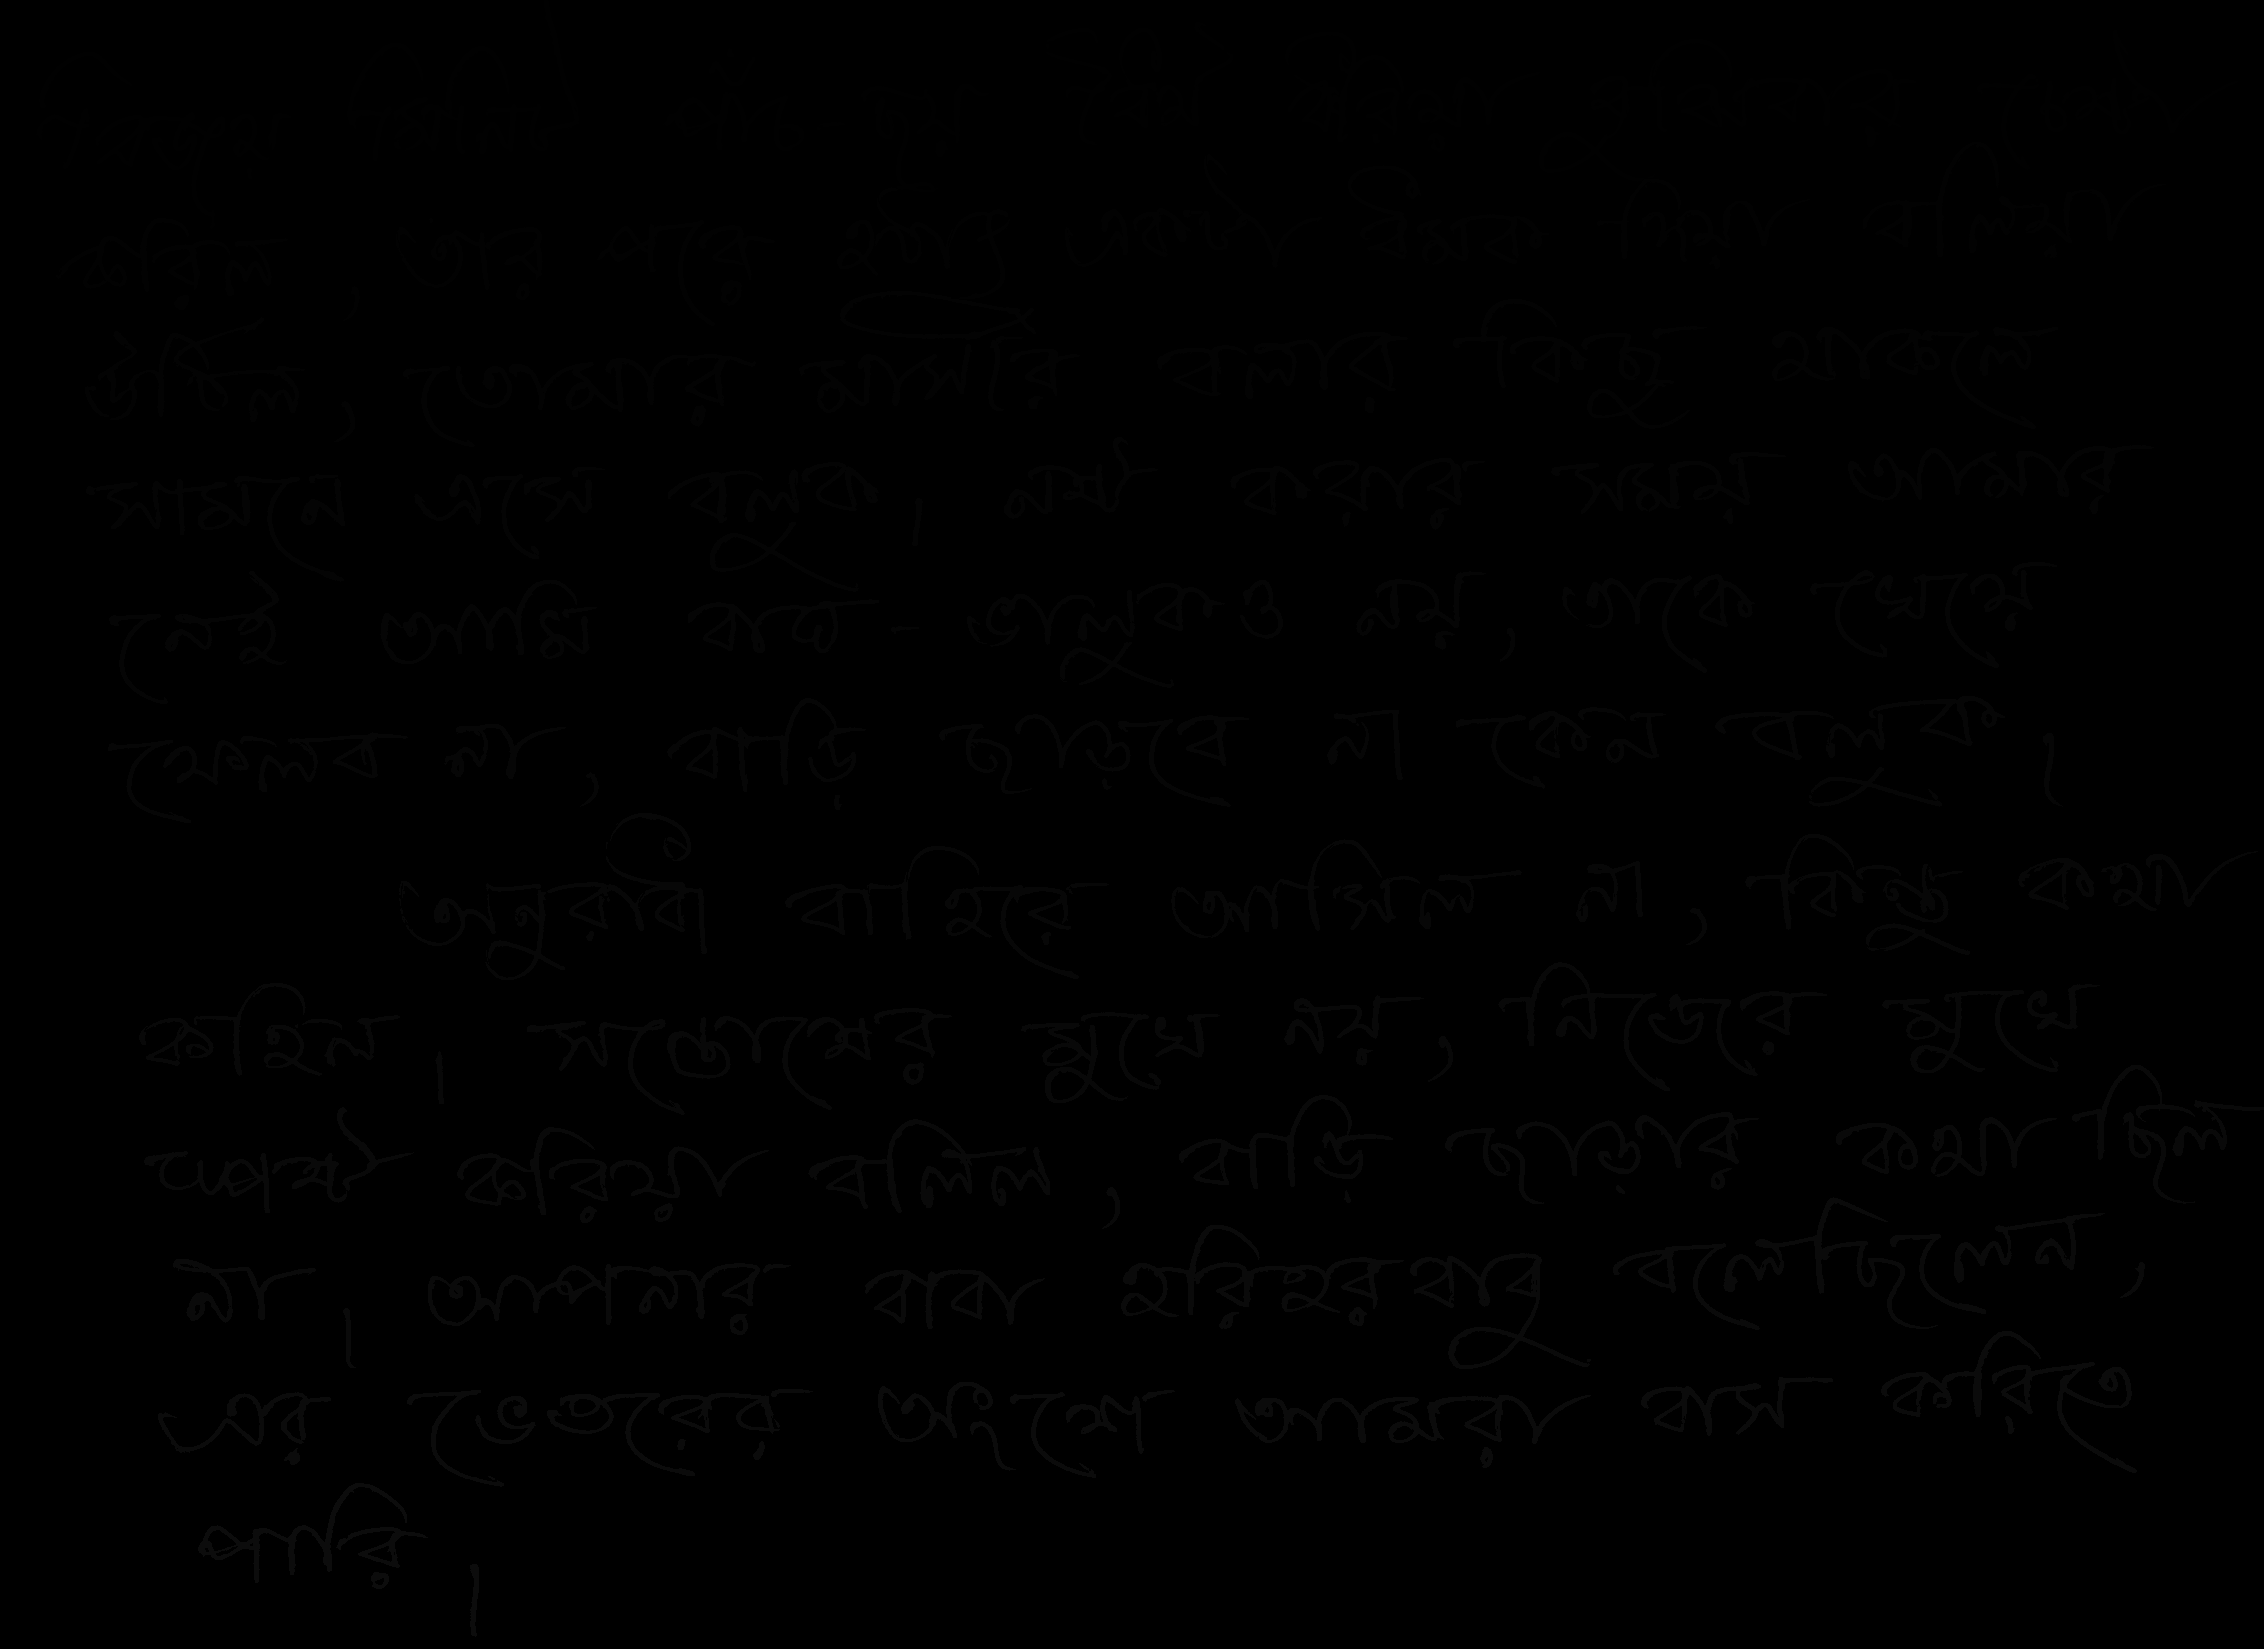 করিল, তার পরে হঠাৎ একটা ধমক দিয়া বলিয়া
উঠিল, তোমার মাসীর বলার কিছু থাকলে
সামনে এসে বলুক। নষ্ট করার সময় আমার
নেই আমি বাঘ-ভালুকও নয়, তাকে খেয়ে
ফেলব না, বাড়ি ছাড়বে না কেন বলুক।
অনুরাধা বাহিরে আসিল না, কিন্তু কথা
কহিল। সন্তোষের মুখে নয়, নিজের মুখে
স্পষ্ট করিয়া বলিল, বাড়ি ছাড়ার কথা ছিল
না। আপনার বাবা হরিহরবাবু বলেছিলেন,
এর ভেতরের অংশে আমরা বাস করিতে
পারি।